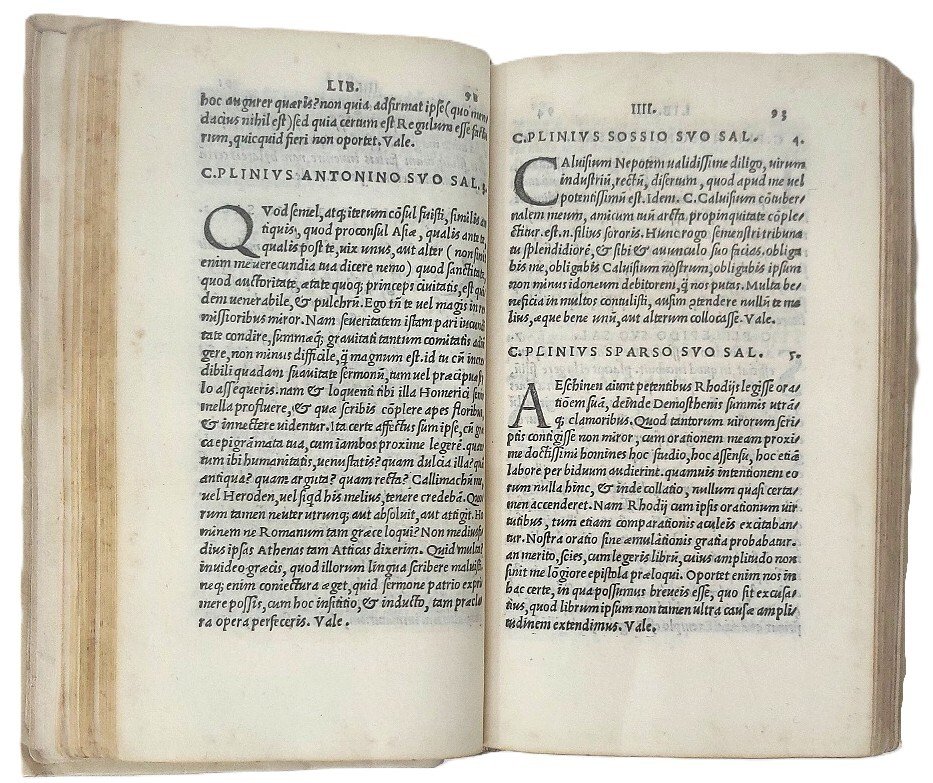 LIB. 92
hoc augurer quæris? non quia adfirmat ipse (quo men
dacius nihil est) sed quia certum est Regulum esse
rum, quicquid fieri non oportet. Vale.
C. PLINIVS ANTONINO SVO SAL. 3.
QVod semel, atq; iterum cõsul fuisti, similis an
tiquis, quod proconsul Asiæ, qualis ante te,
qualis post te, uix unus, aut alter (non sinit
enim me uerecundia tua dicere nemo) quod sanctitate,
quod auctoritate, ætate quoq; princeps ciuitatis, est qui
dem uenerabile, & pulchrũ. Ego tñ te uel magis in re
missioribus miror. Nam seueritatem istam pari iucundi
tate condire, summæq; grauitati tantum comitatis adiũ
gere, non minus difficile, q̃ magnum est. id tu cũ incre
dibili quadam suauitate sermonũ, tum uel præcipua sti
lo assequeris. nam & loquenti tibi illa Homerici senis
mella profluere, & quæ scribis cõplere apes floribus,
& innectere uidentur. Ita certe affectus sum ipse, cũ græ
ca epigrãmata tua, cum iambos proxime legere. quan
tum ibi humanitatis, uenustatis? quam dulcia illa? quã
antiqua? quam arguta? quam recta? Callimachũ me,
uel Heroden, uel siqd his melius, tenere credebã. Quo
rum tamen neuter utrunq; aut absoluit, aut attigit. Ho
minem ne Romanum tam græce loqui? Non medius
dius ipsas Athenas tam Atticas dixerim. Quid multa?
inuideo græcis, quod illorum lingua scribere maluisti.
neq; enim coniectura æget, quid sermone patrio expri
mere possis, cum hoc insititio, & inducto, tam præcla/
ra opera perfeceris. Vale.
IIII. 93
C. PLINIVS SOSSIO SVO SAL. 4.
CAluisium Nepotem ualidissime diligo, uirum
industriũ, rectũ, disertum, quod apud me uel
potentissimũ est. Idem. C. Caluisium cõtuber/
nalem meum, amicum uũ arcta propinquitate cõple/
ctitur. est .n. filius sororis. Hunc rogo semestri tribuna/
tu splendidiorẽ, & sibi & auunculo suo facias. obliga
bis me, obligabis Caluisium nostrum, obligabis ipsum
non minus idoneum debitorem, q̃ nos putas. Multa be/
neficia in multos contulisti, ausim cõtendere nullũ te me
lius, æque bene unũ, aut alterum collocasse. Vale.
C. PLINIVS SPARSO SVO SAL. 5.
AEschinen aiunt petentibus Rhodijs legisse ora/
tiõem suã, deinde Demosthenis summis utrã/
q; clamoribus. Quod tantorum uirorum scri/
ptis contigisse non miror, cum orationem meam proxi/
me doctissimi homines hoc studio, hoc assensu, hoc etiã
labore per biduum audierint. quamuis intentionem eo
rum nulla hinc, & inde collatio, nullum quasi certa/
men accenderet. Nam Rhodij cum ipsis orationum uir
tutibus, tum etiam comparationis aculeis excitaban/
tur. Nostra oratio sine æmulationis gratia probabatur.
an merito, scies, cum legeris librũ, cuius amplitudo non
sinit me lõgiore epistola præloqui. Oportet enim nos in
hac certe, in qua possumus breueis esse, quo sit excusa/
tius, quod librum ipsum non tamen ultra causæ ampli/
tudinem extendimus. Vale.